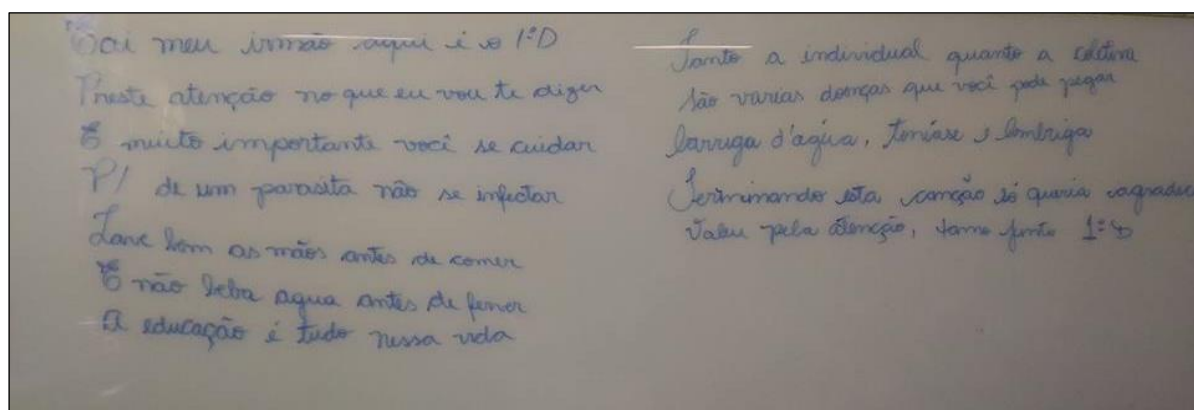 Sai meu irmão aqui é o 1ºD
Preste atenção no que eu vou te dizer
E muito importante você se cuidar
P/ de um parasita não se infectar
Lave bem as mãos antes de comer
E não beba agua antes de ferver
A educação é tudo nessa vida
Tanto a individual quanto a coletiva
São varias doenças que você pode pegar
barriga d'agúa, teníase e lombriga
Terminando esta canção só queria agradecer
Valeu pela atenção, tamo junto 1ºD